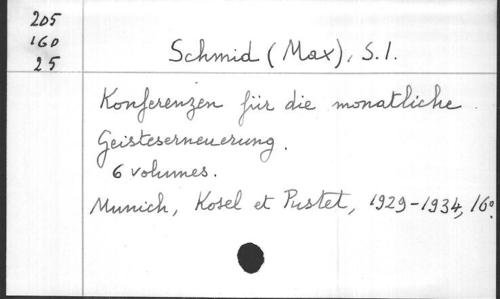 205
160
25
Schmid (Max), S.I.
Konferenzen für die monatliche
Geisteserneuerung.
6 volumes.
Munich, Kosel et Pustet, 1929-1934, 16°